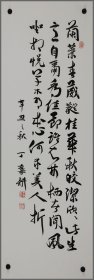 蘭葉春葳蕤桂華秋皎潔欣欣此生
意自爾為佳節誰知林棲者聞風
坐相悅草木有本心何求美人折
辛丑之秋 丁